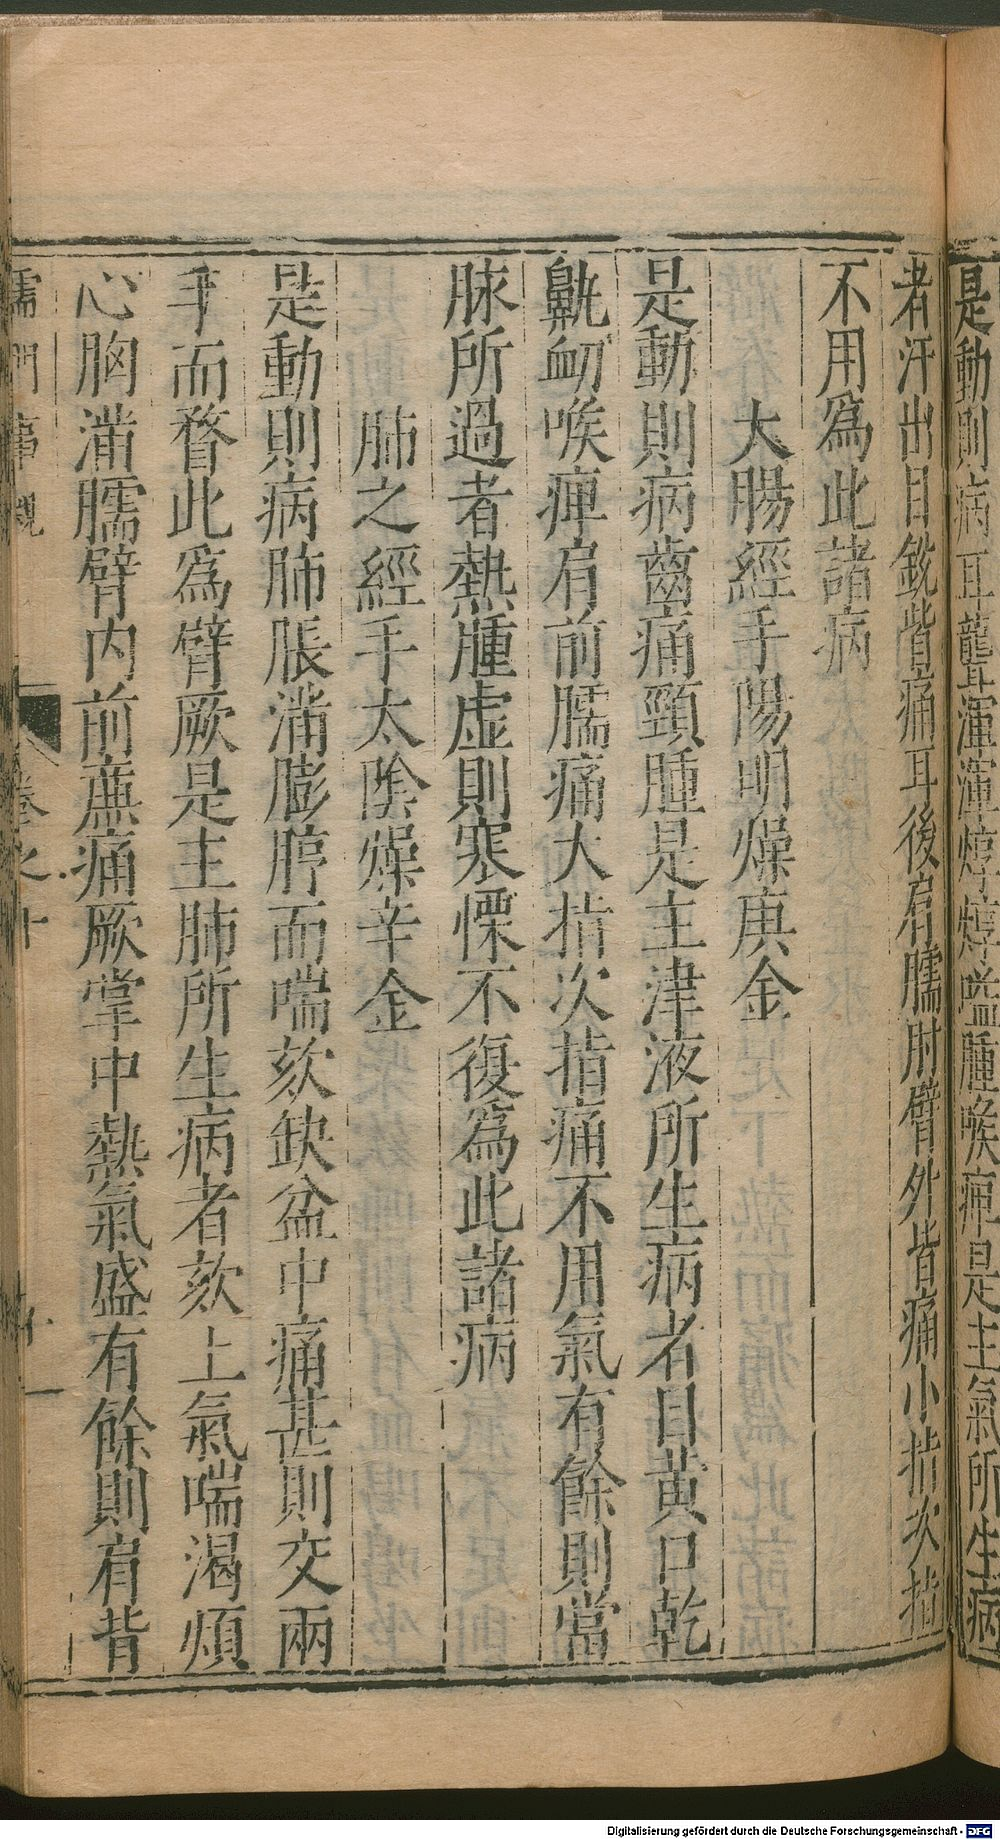 是動則病耳聾渾渾焞焞嗌腫喉痹是主氣所生病
者汗出目銳眥痛耳後肩臑肘臂外皆痛小指次指
不用爲此諸病
大腸經手陽明燥庚金
是動則病齒痛頸腫是主津液所生病者目黃口乾
鼽衂喉痺肩前臑痛大指次指痛不用氣有餘則當
脉所過者熱腫虛則寒慄不復爲此諸病
肺之經手太陰燥辛金
是動則病肺脹滿膨脝而喘欬缺盆中痛甚則交兩
手而瞀此爲臂厥是主肺所生病者欬上氣喘渴煩
心胸滿臑臂內前廉痛厥掌中熱氣盛有餘則肩背
儒門事親
卷之十
Digitalisierung gefördert durch die Deutsche Forschungsgemeinschaft - DFG